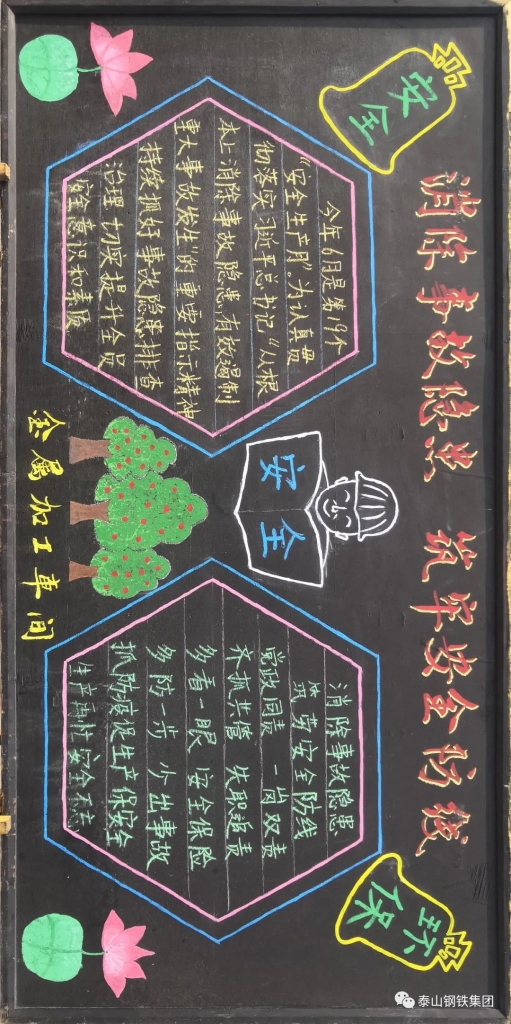 消除事故隐患 筑牢安全防线
安全
环保
今年6月是第19个
“安全生产月”,为认真贯
彻落实习近平总书记“从根
本上消除事故隐患,有效遏制
重大事故发生的重要指示精神
持续抓好事故隐患排查
治理 切实提升全员
安全意识和素质
安全
消除事故隐患
筑劳安全防线
党政同责 一岗双责
齐抓共管 失职追责
多看一眼 安全保险
多防一步 少出事故
抓防疫促生产保安全
生产再忙安全不忘
金属加工车间
泰山钢铁集团